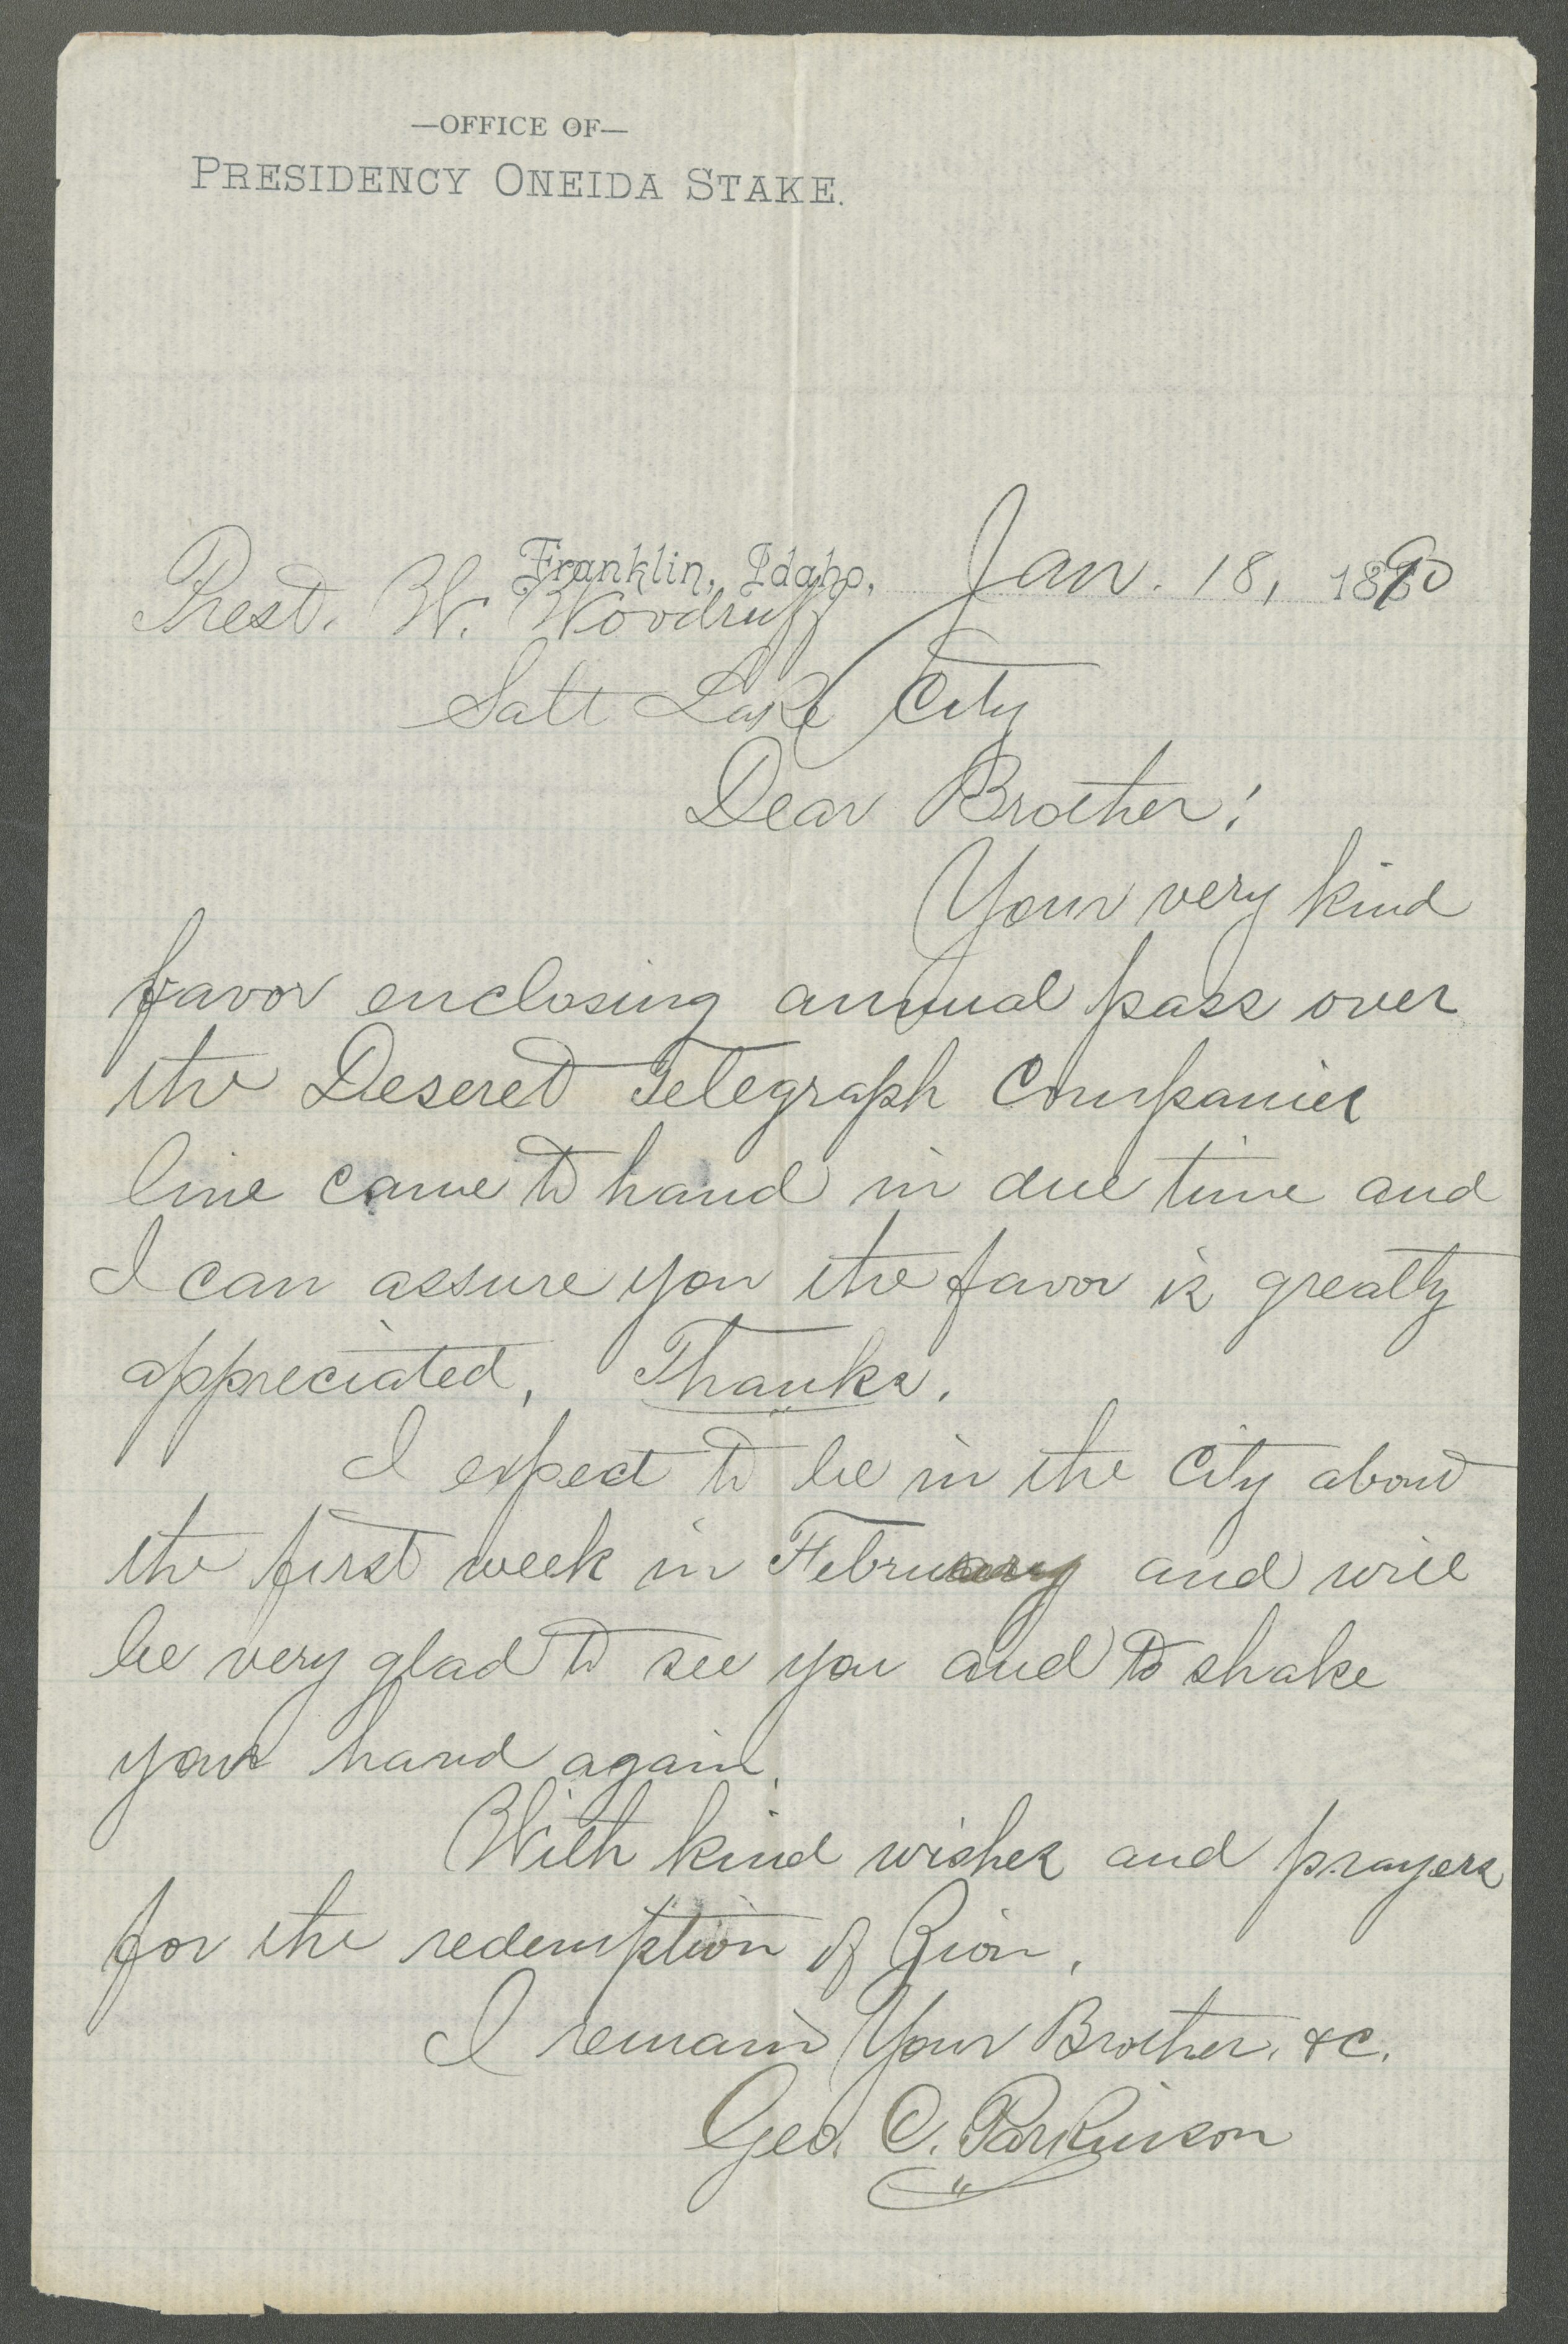 —OFFICE OF—
PRESIDENCY ONEIDA STAKE.
Franklin, Idaho, Jan. 18, 1890
Prest. W. Woodruff
Salt Lake City
Dear Brother!
Your very kind
favor enclosing annual pass over
the Deseret Telegraph Companies
line came to hand in due time and
I can assure you the favor is greatly
appreciated, Thanks.
I expect to be in the City about
the first week in February and will
be very glad to see you and to shake
your hand again.
With kind wishes and prayers
for the redemption of Zion,
I remain Your Brother, &c.
Geo. C. Parkinson